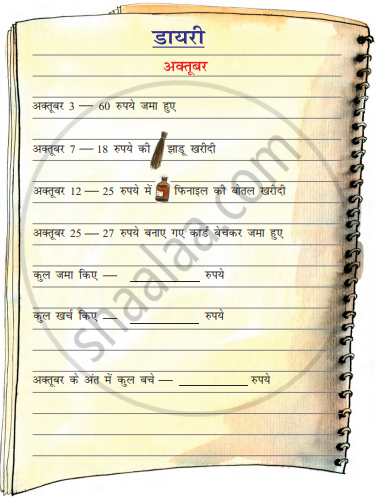 डायरी
अक्तूबर
अक्तूबर 3 — 60 रुपये जमा हुए
अक्तूबर 7 — 18 रुपये की झाडू खरीदी
अक्तूबर 12 — 25 रुपये में फिनाइल की बोतल खरीदी
अक्तूबर 25 — 27 रुपये बनाए गए कार्ड बेचकर जमा हुए
कुल जमा किए — __________ रुपये
कुल खर्च किए — __________ रुपये
अक्तूबर के अंत में कुल बचे — __________ रुपये
shaalaa.com